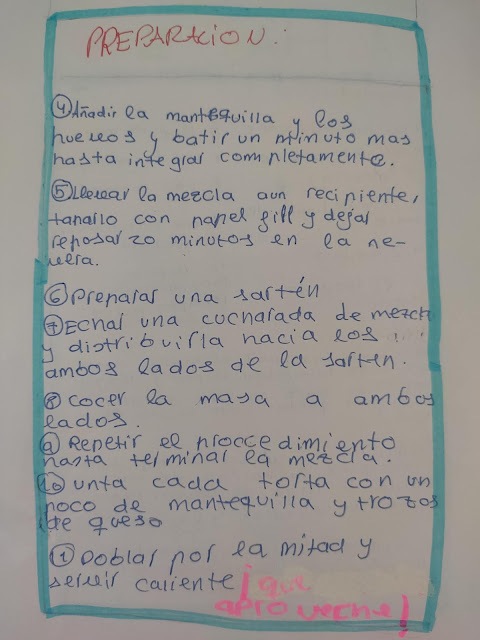 PREPARACION:
④Añadir la mantequilla y los
huevos y batir un minuto mas
hasta integrar completamente.
⑤llevar la mezcla aun recipiente,
taparlo con papel fill y dejar
reposar 20 minutos en la ne-
vera.
⑥Preparar una sartén
⑦Echar una cucharada de mezcla
y distribuirla hacia los
ambos lados de la sarten.
⑧ cocer la masa a ambos
lados.
⑨ Repetir el proccedimiento
hasta terminar la mezcla.
⑩ unta cada torta con un
poco de mantequilla y trozos
de queso
① Doblar por la mitad y
servir caliente ¡que
aproveche!